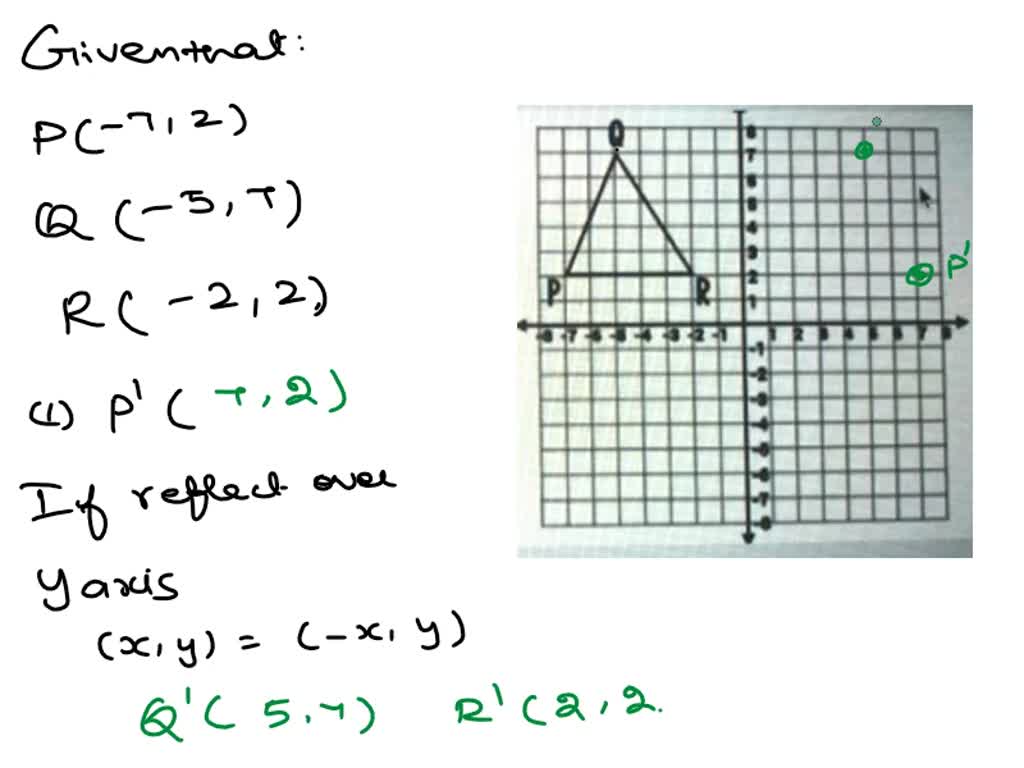 Given that:
P(-7, 2)
Q (-5, 7)
R (-2, 2)
(1) P' ( 7, 2)
If reflect over
y axis
(x, y) = (-x, y)
Q' ( 5, 7) R' (2, 2.
Q
P R
P'
8
7
6
5
4
3
2
1
-8 -7 -6 -5 -4 -3 -2 -1 1 2 3 4 5 6 7 8
-1
-2
-3
-4
-5
-6
-7
-8